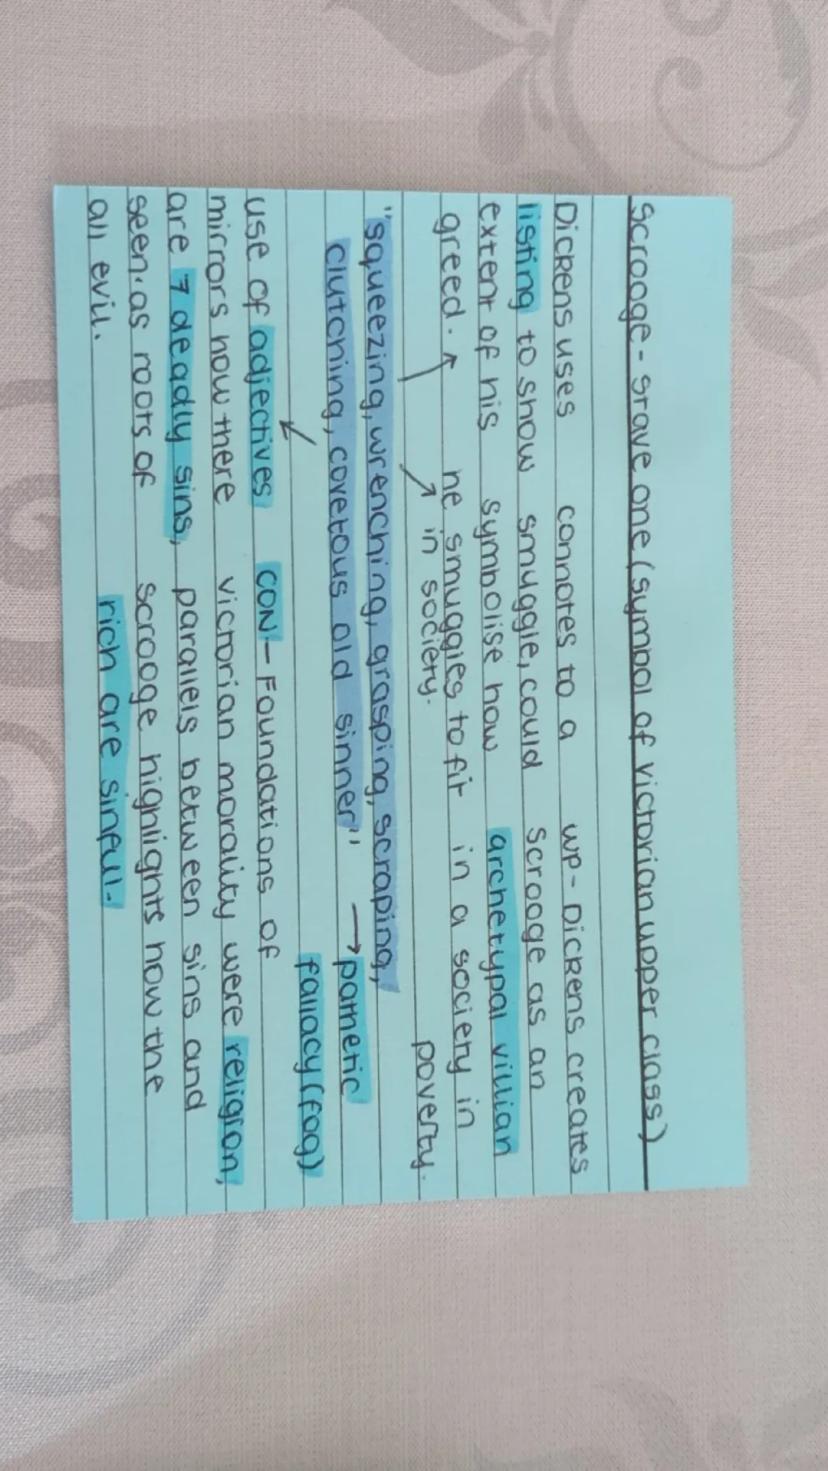 Scrooge - Stave one (symbol of victorian upper class)
Dickens uses connotes to a WP - Dickens creates
listing to show smuggle, could scrooge as an
extent of his symbolise how archetypal villian
greed. he smuggles to fit in a society in
in society. poverty.
"squeezing, wrenching, grasping, scraping,
clutching, covetous old sinner" → pathetic
fallacy (fog)
use of adjectives CON - Foundations of
mirrors how there victorian morality were religion,
are 7 deadly sins, parallels between sins and
seen as roots of scrooge highlights how the
all evil. rich are sinful.